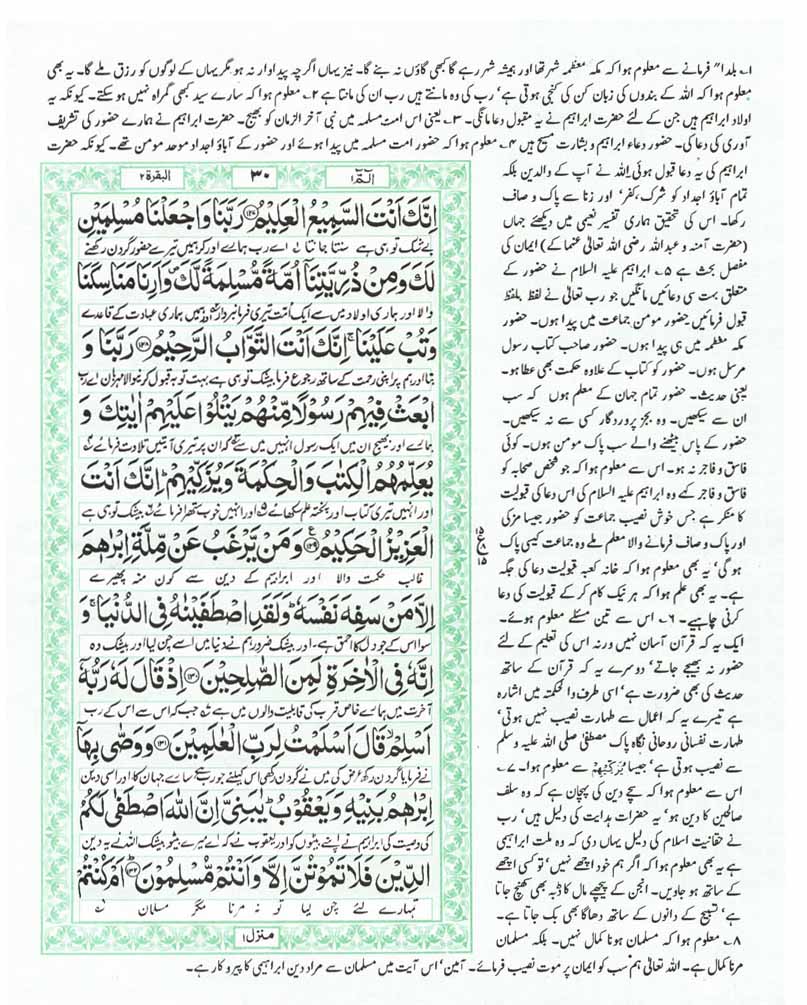 ۱۔ بلدا" فرمانے سے معلوم ہوا کہ مکہ معظمہ شہر تھا اور ہمیشہ شہر رہے گا کبھی گاؤں نہ بنے گا۔ نیز یہاں اگرچہ پیداوار نہ ہو مگر یہاں کے لوگوں کو رزق ملے گا۔ یہ بھی
معلوم ہوا کہ اللہ کے بندوں کی زبان کن کی کنجی ہوتی ہے' رب کی وہ مانتے ہیں رب ان کی مانتا ہے ۲۔ معلوم ہوا کہ سارے سید کبھی گمراہ نہیں ہو سکتے۔ کیونکہ یہ
اولاد ابراہیم ہیں جن کے لئے حضرت ابراہیم نے یہ مقبول دعا مانگی۔ ۳۔ یعنی اس امت مسلمہ میں نبی آخر الزمان کو بھیج۔ حضرت ابراہیم نے ہمارے حضور کی تشریف
آوری کی دعا کی۔ حضور دعاء ابراہیم و بشارت مسیح ہیں ۴۔ معلوم ہوا کہ حضور امت مسلمہ میں پیدا ہوئے اور حضور کے آباؤ اجداد موحد مومن تھے۔ کیونکہ حضرت
ابراہیم کی یہ دعا قبول ہوئی اللہ نے آپ کے والدین بلکہ
تمام آباؤ اجداد کو شرک، کفر' اور زنا سے پاک و صاف
رکھا۔ اس کی تحقیق ہماری تفسیر نعیمی میں دیکھئے جہاں
(حضرت آمنہ و عبداللہ رضی اللہ تعالیٰ عنہما کے) ایمان کی
مفصل بحث ہے ۵۔ ابراہیم علیہ السلام نے حضور کے
متعلق بہت سی دعائیں مانگیں جو رب تعالیٰ نے لفظ بلفظ
قبول فرمائیں حضور مومن جماعت میں پیدا ہوں۔ حضور
مکہ معظمہ میں ہی پیدا ہوں۔ حضور صاحب کتاب رسول
مرسل ہوں۔ حضور کو کتاب کے علاوہ حکمت بھی عطا ہو۔
یعنی حدیث۔ حضور تمام جہان کے معلم ہوں کہ سب
ان سے سیکھیں۔ وہ بجز پروردگار کسی سے نہ سیکھیں۔
حضور کے پاس بیٹھنے والے سب پاک مومن ہوں۔ کوئی
فاسق و فاجر نہ ہو۔ اس سے معلوم ہوا کہ جو شخص صحابہ کو
فاسق و فاجر کہے وہ ابراہیم علیہ السلام کی اس دعا کی قبولیت
کا منکر ہے جس خوش نصیب جماعت کو حضور جیسا مزکی
اور پاک و صاف فرمانے والا معلم ملے وہ جماعت کیسی پاک
ہو گی' یہ بھی معلوم ہوا کہ خانہ کعبہ قبولیت دعا کی جگہ
ہے۔ یہ بھی علم ہوا کہ ہر نیک کام کر کے قبولیت کی دعا
کرنی چاہیے۔ ۶۔ اس سے تین مسئلے معلوم ہوئے۔
ایک یہ کہ قرآن آسان نہیں ورنہ اس کی تعلیم کے لئے
حضور نہ بھیجے جاتے' دوسرے یہ کہ قرآن کے ساتھ
حدیث کی بھی ضرورت ہے' اسی طرف والحکمتہ میں اشارہ
ہے تیسرے یہ کہ اعمال سے طہارت نصیب نہیں ہوتی'
طہارت نفسانی روحانی نگاہ پاک مصطفیٰ صلی اللہ علیہ وسلم
سے نصیب ہوتی ہے' جیسا یزکیھم سے معلوم ہوا۔ ۷۔
اس سے معلوم ہوا کہ سچے دین کی پہچان ہے کہ وہ سلف
صالحین کا دین ہو' یہ حضرات ہدایت کی دلیل ہیں' رب
نے حقانیت اسلام کی دلیل یہاں دی کہ وہ ملت ابراہیمی
ہے یہ بھی معلوم ہوا کہ اگر ہم خود اچھے نہیں' تو کسی اچھے
کے ساتھ ہو جاویں۔ انجن کے پیچھے مال کا ڈبہ بھی کھنچ جاتا
ہے' تسبیح کے دانوں کے ساتھ دھاگا بھی بک جاتا ہے۔
۸۔ معلوم ہوا کہ مسلمان ہونا کمال نہیں۔ بلکہ مسلمان
مرنا کمال ہے۔ اللہ تعالیٰ ہم سب کو ایمان پر موت نصیب فرمائے۔ آمین' اس آیت میں مسلمان سے مراد دین ابراہیمی کا پیروکار ہے۔
الٓمّٓ ۱ ۳۰ البقرۃ ۲
اِنَّكَ اَنْتَ السَّمِیْعُ الْعَلِیْمُ ۝۱۲۷ رَبَّنَا وَاجْعَلْنَا مُسْلِمَیْنِ
بے شک تو ہی ہے سنتا جانتا اے رب ہمارے اور کر ہمیں تیرے حضور گردن رکھنے
لَكَ وَمِنْ ذُرِّیَّتِنَاۤ اُمَّةً مُّسْلِمَةً لَّكَ ۪ وَاَرِنَا مَنَاسِكَنَا
والا اور ہماری اولاد میں سے ایک امت تیری فرمانبردار اور ہمیں ہماری عبادت کے قاعدے
وَتُبْ عَلَیْنَا ۚ اِنَّكَ اَنْتَ التَّوَّابُ الرَّحِیْمُ ۝۱۲۸ رَبَّنَا وَ
بتا اور ہم پر اپنی رحمت کے ساتھ رجوع فرما بیشک تو ہی ہے بہت توبہ قبول کرنیوالا مہربان اے رب
ابْعَثْ فِیْهِمْ رَسُوْلًا مِّنْهُمْ یَتْلُوْا عَلَیْهِمْ اٰیٰتِكَ وَ
ہمارے اور بھیج ان میں ایک رسول انہیں میں سے کہ ان پر تیری آیتیں تلاوت فرمائے
یُعَلِّمُهُمُ الْكِتٰبَ وَالْحِكْمَةَ وَیُزَكِّیْهِمْ ؕ اِنَّكَ اَنْتَ
اور انہیں تیری کتاب اور پختہ علم سکھائے اور انہیں خوب ستھرا فرمائے بیشک تو ہی ہے
الْعَزِیْزُ الْحَكِیْمُ ۝۱۲۹ وَمَنْ یَّرْغَبُ عَنْ مِّلَّةِ اِبْرٰهٖمَ
غالب حکمت والا اور ابراہیم کے دین سے کون منہ پھیرے
اِلَّا مَنْ سَفِهَ نَفْسَهٗ ؕ وَلَقَدِ اصْطَفَیْنٰهُ فِی الدُّنْیَا ۚ وَ
سوا اس کے جو دل کا احمق ہے۔ اور بیشک ضرور ہم نے دنیا میں اسے چن لیا اور بیشک وہ
اِنَّهٗ فِی الْاٰخِرَةِ لَمِنَ الصّٰلِحِیْنَ ۝۱۳۰ اِذْ قَالَ لَهٗ رَبُّهٗۤ
آخرت میں ہمارے خاص قرب کی قابلیت والوں میں ہے جب کہ اس سے اس کے رب
اَسْلِمْ ۙ قَالَ اَسْلَمْتُ لِرَبِّ الْعٰلَمِیْنَ ۝۱۳۱ وَوَصّٰی بِهَاۤ
نے فرمایا گردن رکھ عرض کی میں نے گردن رکھی اس کیلئے جو رب ہے سارے جہان کا اور اسی دین
اِبْرٰهٖمُ بَنِیْهِ وَیَعْقُوْبُ ؕ یٰبَنِیَّ اِنَّ اللّٰهَ اصْطَفٰی لَكُمُ
کی وصیت کی ابراہیم نے اپنے بیٹوں کو اور یعقوب نے کہ اے میرے بیٹو بیشک اللہ نے یہ دین
الدِّیْنَ فَلَا تَمُوْتُنَّ اِلَّا وَاَنْتُمْ مُّسْلِمُوْنَ ۝۱۳۲ اَمْ كُنْتُمْ
تمہارے لئے چن لیا تو نہ مرنا مگر مسلمان
منزل ۱
۱۵
ع
۱۵